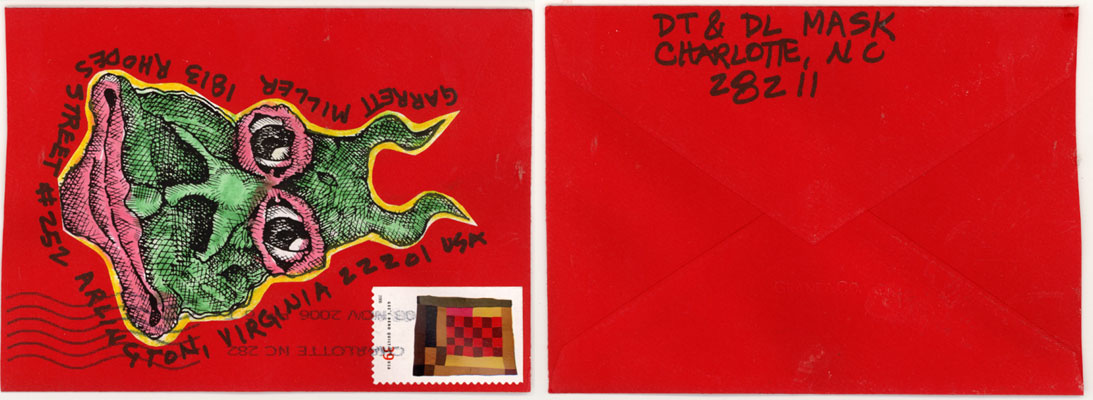 GARRETT MILLER 1813 RHODES STREET #252 ARLINGTON, VIRGINIA 22201 USA
CHARLOTTE NC 282
03 NOV 2006
39
USA
DT & DL MASK
CHARLOTTE, NC
28211